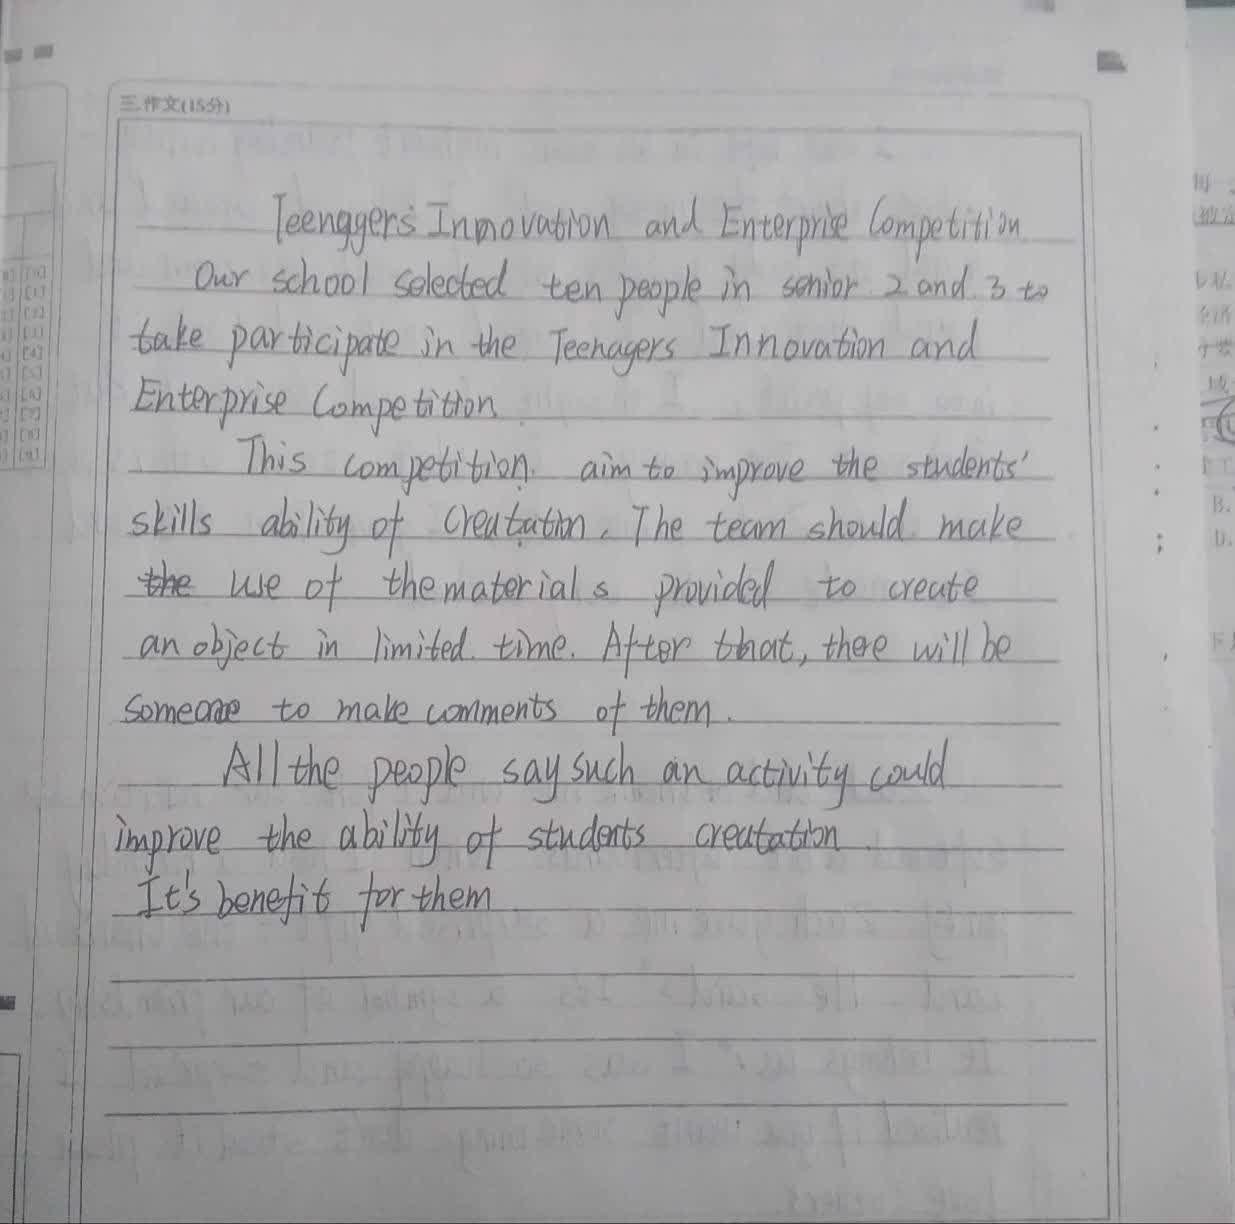 三.作文(15分)
Teenggers Innovation and Enterprise Competition
Our school selected ten people in senior 2 and 3 to
take participate in the Teenagers Innovation and
Enterprise Competition
This competition. aim to improve the students'
skills ability of creatation. The team should make
the use of the materials provided to create
an object in limited time. After that, there will be
someone to make comments of them.
All the people say such an activity could
improve the ability of students creatation.
It's benefit for them
B.
D.